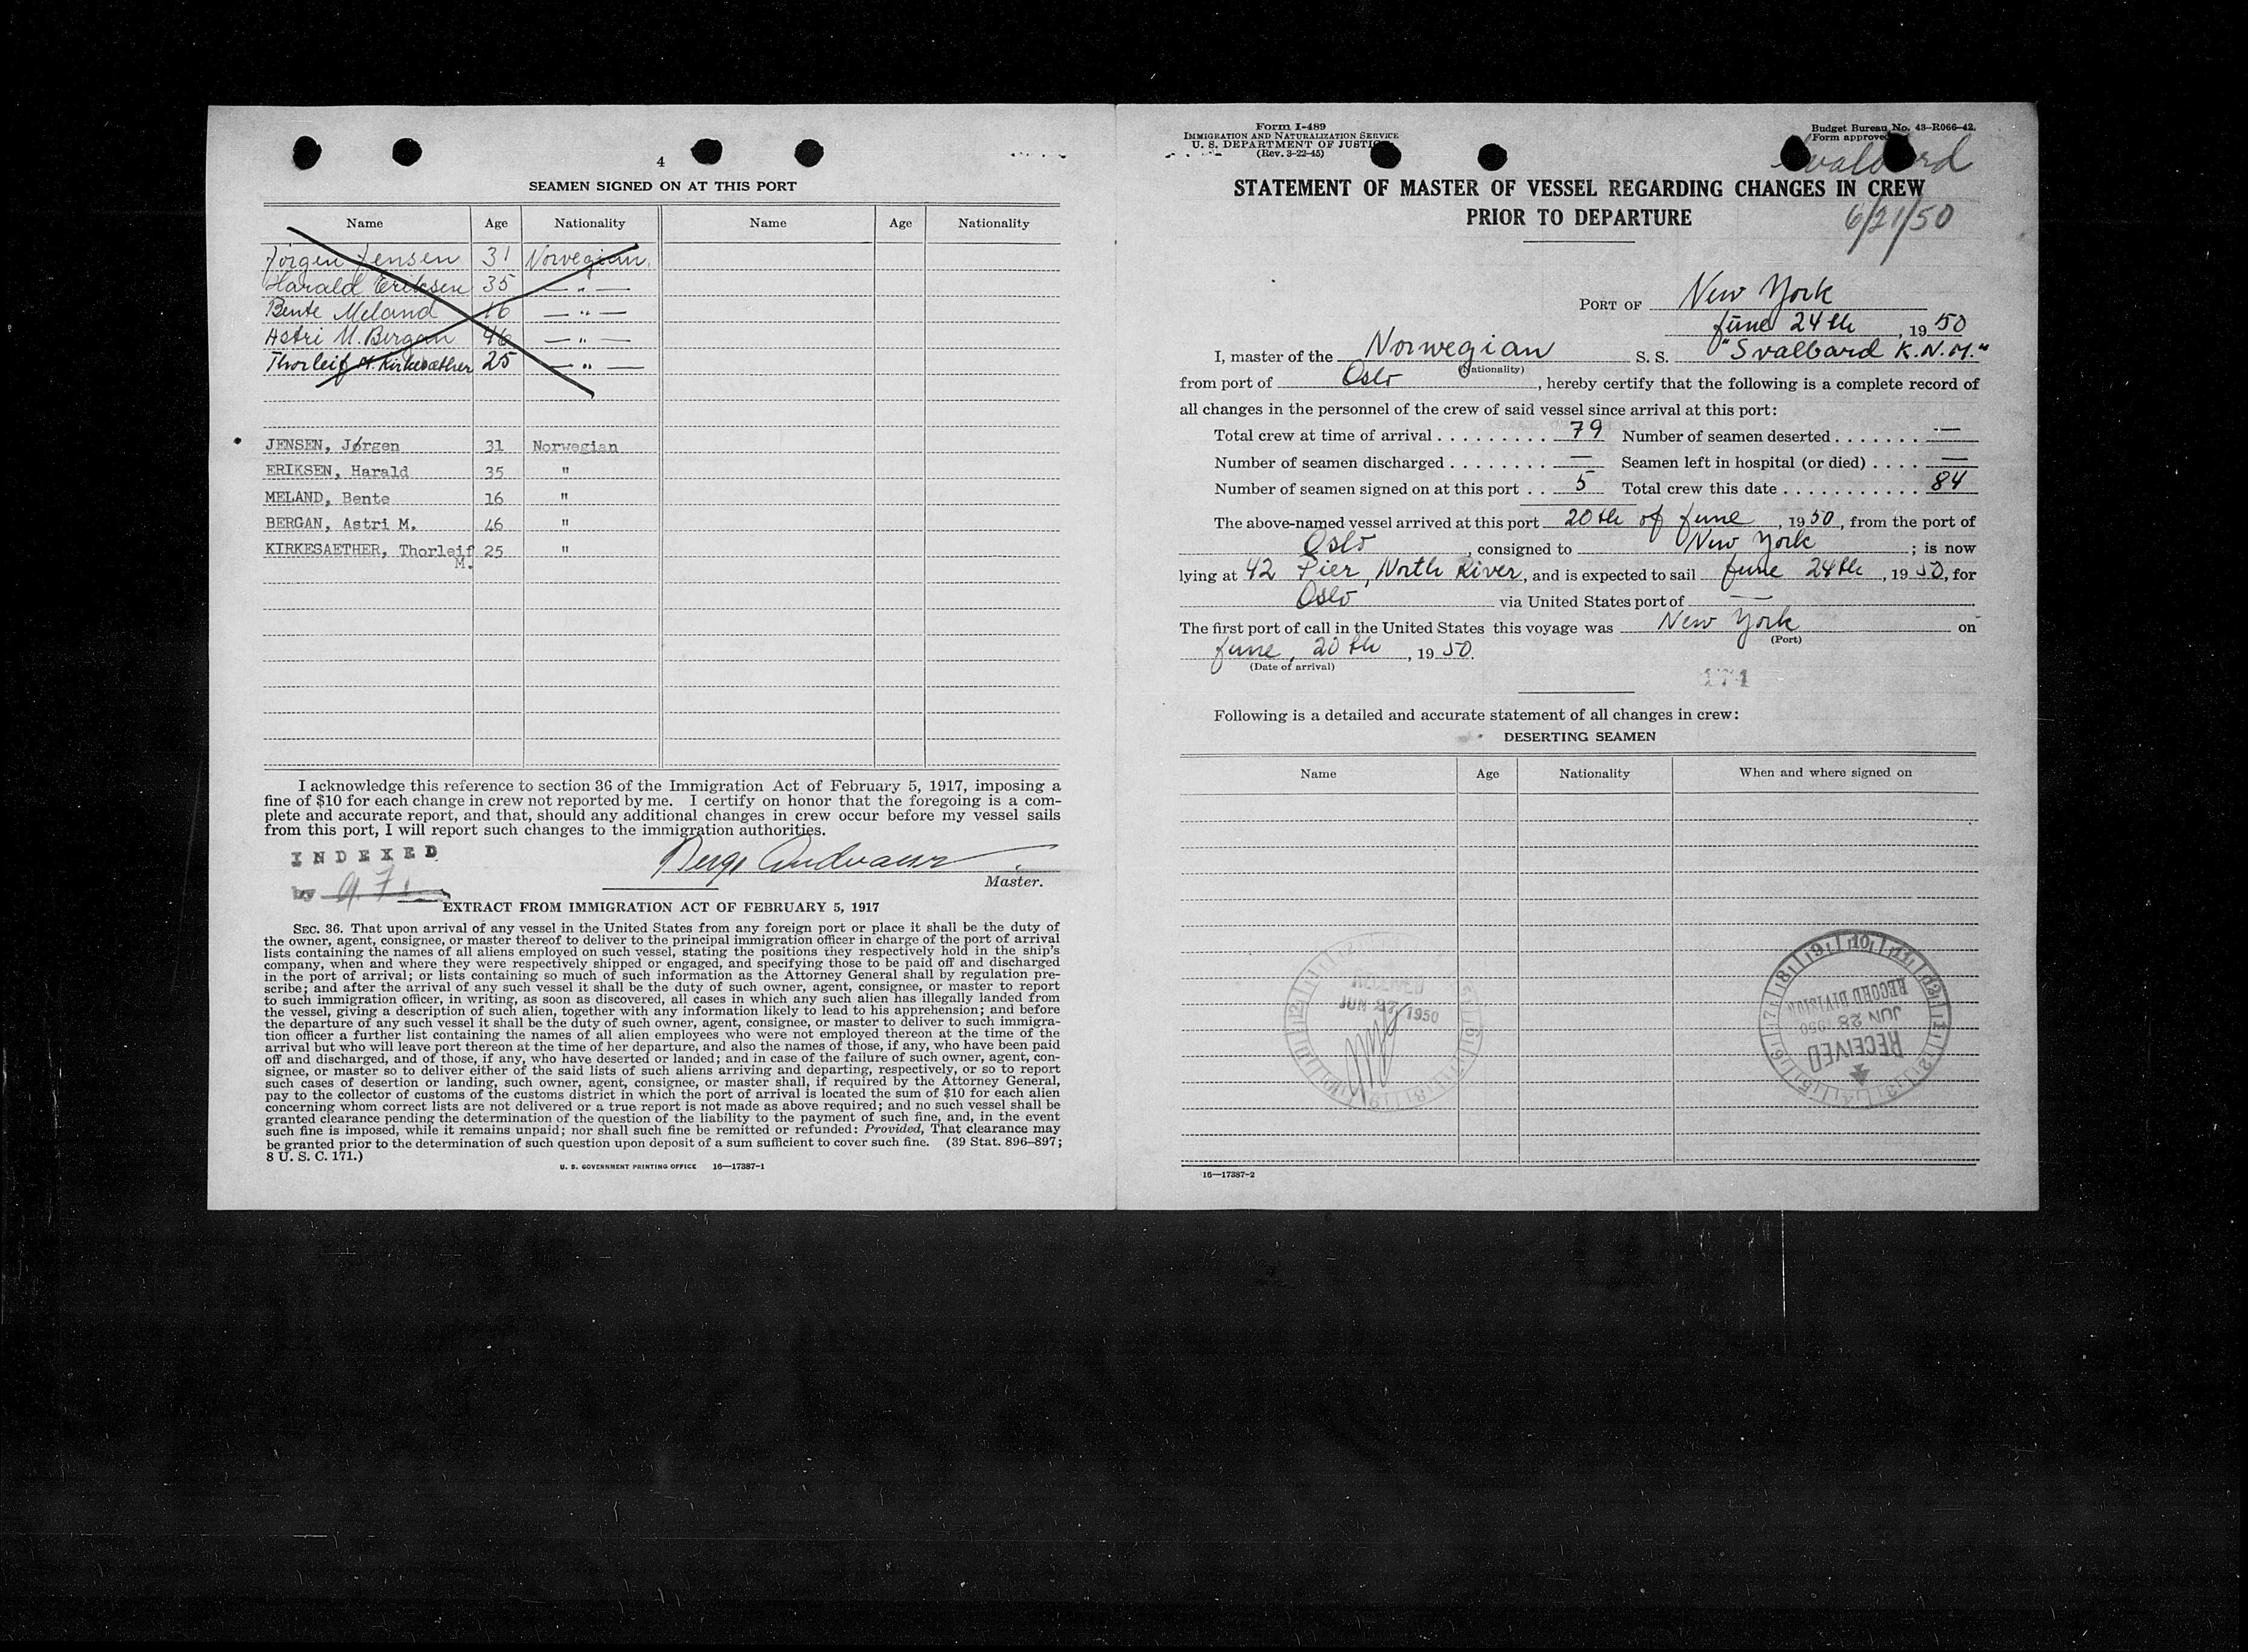 4
SEAMEN SIGNED ON AT THIS PORT
Name Age Nationality Name Age Nationality
Jörgen Jensen 31 Norwegian
Harald Eriksen 35 — " —
Bente Meland 16 — " —
Astri M. Bergan 46 — " —
Thorleif M. Kirkesæther 25 — " —
JENSEN, Jørgen 31 Norwegian
ERIKSEN, Harald 35 "
MELAND, Bente 16 "
BERGAN, Astri M. 46 "
KIRKESAETHER, Thorleif 25 "
M.
I acknowledge this reference to section 36 of the Immigration Act of February 5, 1917, imposing a
fine of $10 for each change in crew not reported by me. I certify on honor that the foregoing is a com-
plete and accurate report, and that, should any additional changes in crew occur before my vessel sails
from this port, I will report such changes to the immigration authorities.
INDEXED
by
Master.
EXTRACT FROM IMMIGRATION ACT OF FEBRUARY 5, 1917
SEC. 36. That upon arrival of any vessel in the United States from any foreign port or place it shall be the duty of
the owner, agent, consignee, or master thereof to deliver to the principal immigration officer in charge of the port of arrival
lists containing the names of all aliens employed on such vessel, stating the positions they respectively hold in the ship's
company, when and where they were respectively shipped or engaged, and specifying those to be paid off and discharged
in the port of arrival; or lists containing so much of such information as the Attorney General shall by regulation pre-
scribe; and after the arrival of any such vessel it shall be the duty of such owner, agent, consignee, or master to report
to such immigration officer, in writing, as soon as discovered, all cases in which any such alien has illegally landed from
the vessel, giving a description of such alien, together with any information likely to lead to his apprehension; and before
the departure of any such vessel it shall be the duty of such owner, agent, consignee, or master to deliver to such immigra-
tion officer a further list containing the names of all alien employees who were not employed thereon at the time of the
arrival but who will leave port thereon at the time of her departure, and also the names of those, if any, who have been paid
off and discharged, and of those, if any, who have deserted or landed; and in case of the failure of such owner, agent, con-
signee, or master so to deliver either of the said lists of such aliens arriving and departing, respectively, or so to report
such cases of desertion or landing, such owner, agent, consignee, or master shall, if required by the Attorney General,
pay to the collector of customs of the customs district in which the port of arrival is located the sum of $10 for each alien
concerning whom correct lists are not delivered or a true report is not made as above required; and no such vessel shall be
granted clearance pending the determination of the question of the liability to the payment of such fine, and, in the event
such fine is imposed, while it remains unpaid; nor shall such fine be remitted or refunded: Provided, That clearance may
be granted prior to the determination of such question upon deposit of a sum sufficient to cover such fine. (39 Stat. 896–897;
8 U. S. C. 171.)
U. S. GOVERNMENT PRINTING OFFICE 16—17387-1
Form I-489
IMMIGRATION AND NATURALIZATION SERVICE
U. S. DEPARTMENT OF JUSTICE
(Rev. 3-22-45)
Budget Bureau No. 43-R066-42.
Form approved
Svalbard
STATEMENT OF MASTER OF VESSEL REGARDING CHANGES IN CREW
PRIOR TO DEPARTURE
6/21/50
PORT OF New York
June 24th, 1950
I, master of the Norwegian S. S. "Svalbard K.N.M."
(Nationality)
from port of Oslo, hereby certify that the following is a complete record of
all changes in the personnel of the crew of said vessel since arrival at this port:
Total crew at time of arrival . . . . . . . . . 79 Number of seamen deserted . . . . . . . —
Number of seamen discharged . . . . . . . . — Seamen left in hospital (or died) . . . . —
Number of seamen signed on at this port . . 5 Total crew this date . . . . . . . . . . . 84
The above-named vessel arrived at this port 20th of June, 1950, from the port of
Oslo, consigned to New York; is now
lying at 42 Pier, North River, and is expected to sail June 24th, 1950, for
Oslo via United States port of —
The first port of call in the United States this voyage was New York on
(Port)
June, 20th, 1950.
(Date of arrival)
171
Following is a detailed and accurate statement of all changes in crew:
DESERTING SEAMEN
Name Age Nationality When and where signed on
RECEIVED
JUN 27 1950
RECEIVED
JUN 28 1950
RECORD DIVISION
16—17387-2